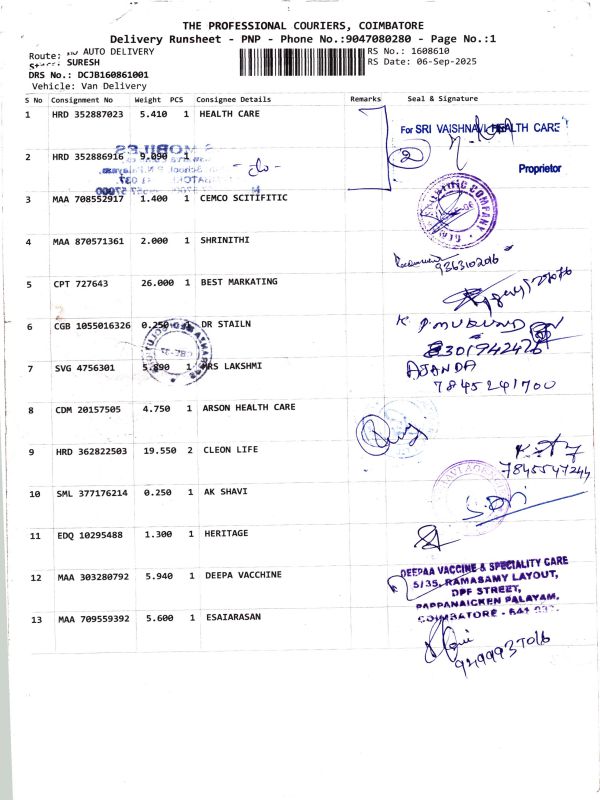 THE PROFESSIONAL COURIERS, COIMBATORE
Delivery Runsheet - PNP - Phone No.:9047080280 - Page No.:1
Route: AUTO DELIVERY
SURESH
DRS No.: DCJB160861001
Vehicle: Van Delivery
RS No.: 1608610
RS Date: 06-Sep-2025
S No Consignment No Weight PCS Consignee Details Remarks Seal & Signature
1 HRD 352887023 5.410 1 HEALTH CARE
For SRI VAISHNAVI HEALTH CARE
2
Proprietor
2 HRD 352886916 9.090 1 -do-
3 MAA 708552917 1.400 1 CEMCO SCITIFITIC
4 MAA 870571361 2.000 1 SHRINITHI
9363102016
5 CPT 727643 26.000 1 BEST MARKATING
6 CGB 1055016326 0.250 1 DR STAILN
7 SVG 4756301 5.890 1 MRS LAKSHMI
AJANDA
7845241700
8 CDM 20157505 4.750 1 ARSON HEALTH CARE
9 HRD 362822503 19.550 2 CLEON LIFE
7845547244
10 SML 377176214 0.250 1 AK SHAVI
11 EDQ 10295488 1.300 1 HERITAGE
12 MAA 303280792 5.940 1 DEEPA VACCHINE
DEEPAA VACCINE & SPECIALITY CARE
5/35, RAMASAMY LAYOUT,
DPF STREET,
PAPPANAICKEN PALAYAM,
COIMBATORE - 641 037.
13 MAA 709559392 5.600 1 ESAIARASAN